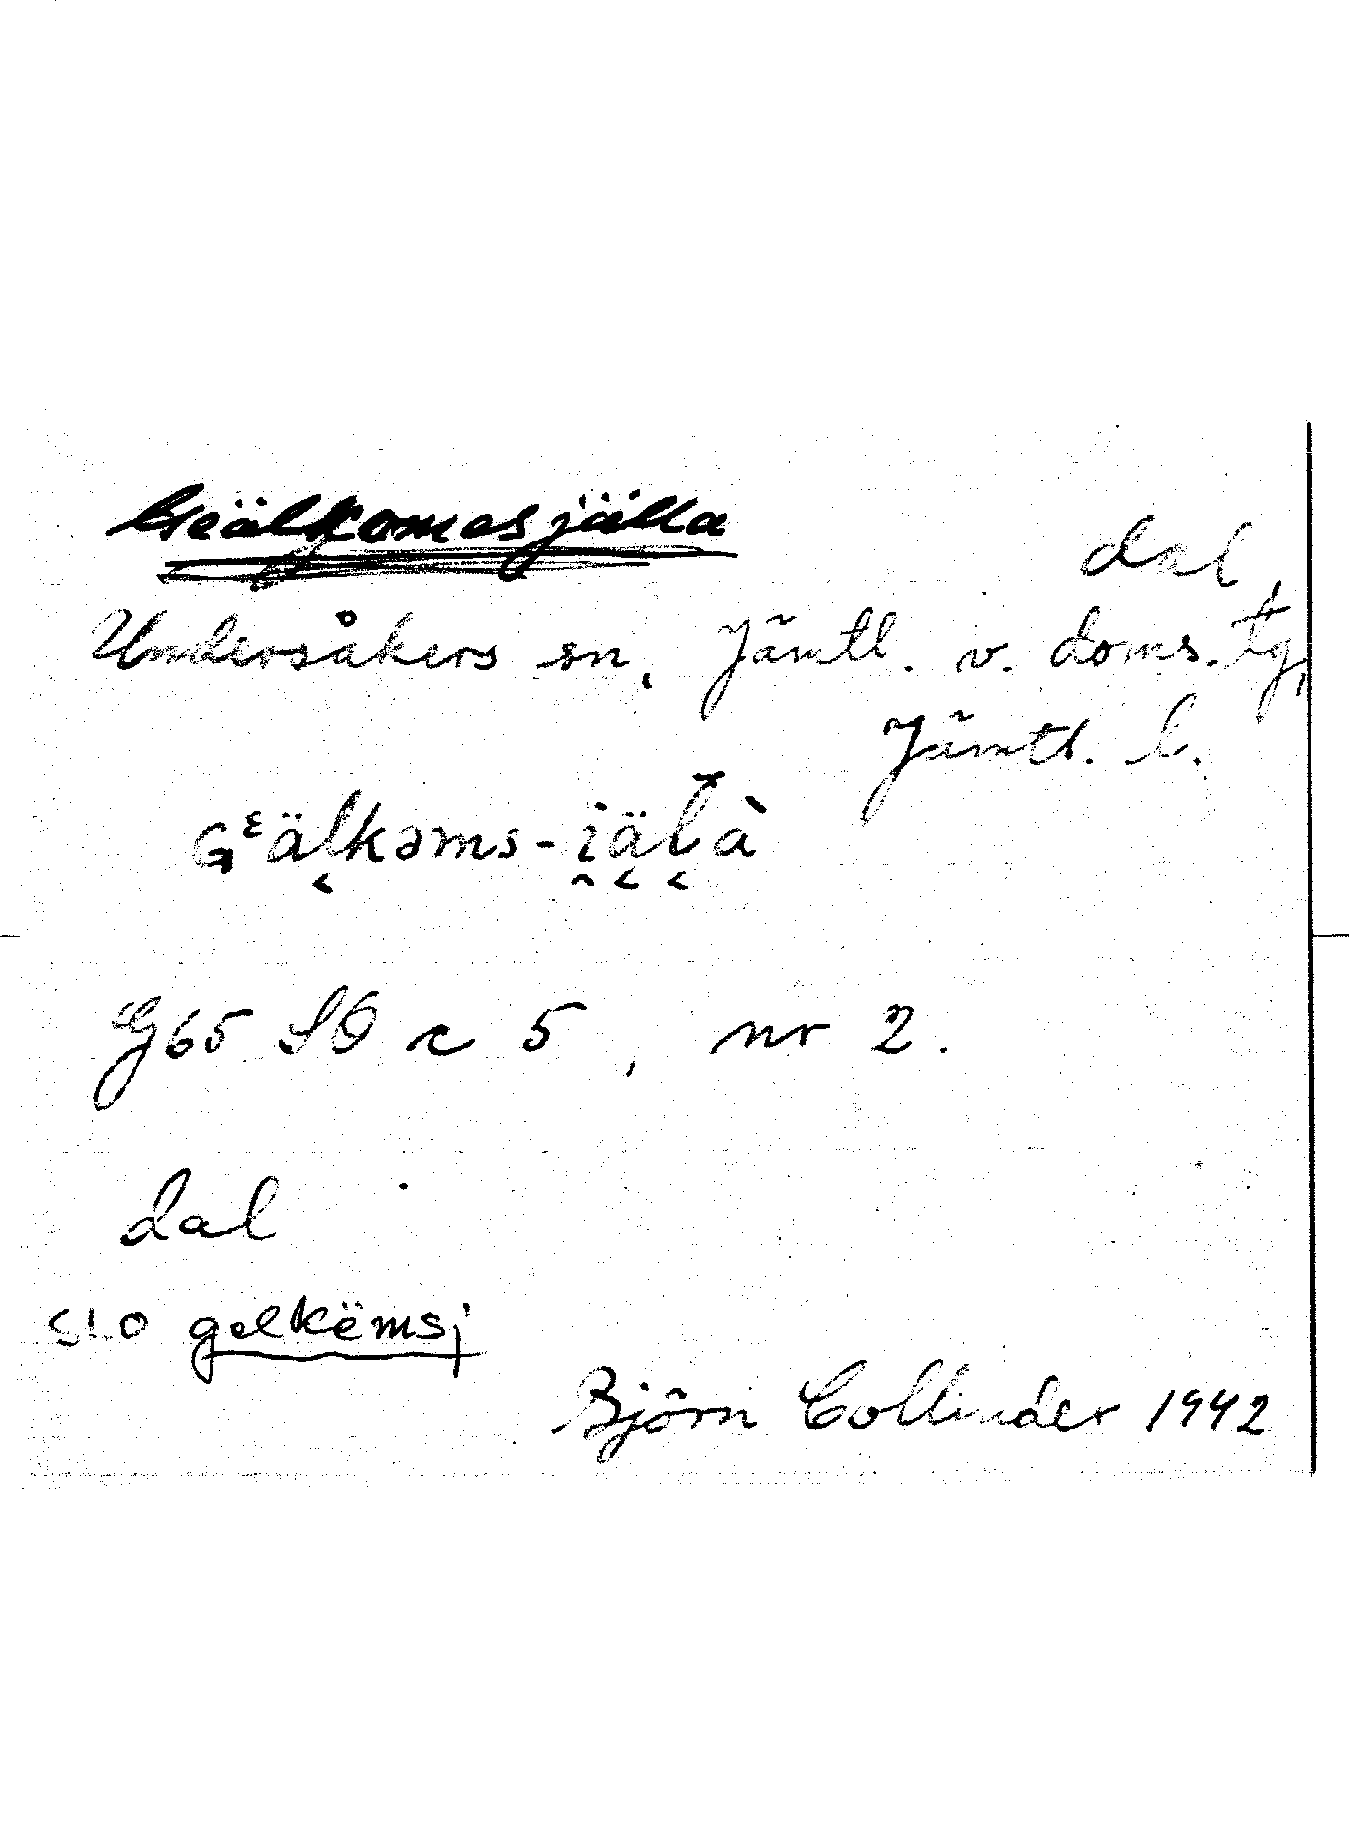 Geälkomesjälla
dal,
Undersåkers sn, Jämtl. v. doms. tg,
Jämtl. l.
Gᵋäl̬kəms-i̯äl̄à
G65 SO c 5, nr 2.
dal
SLO gelkëmsj
Björn Collinder 1942